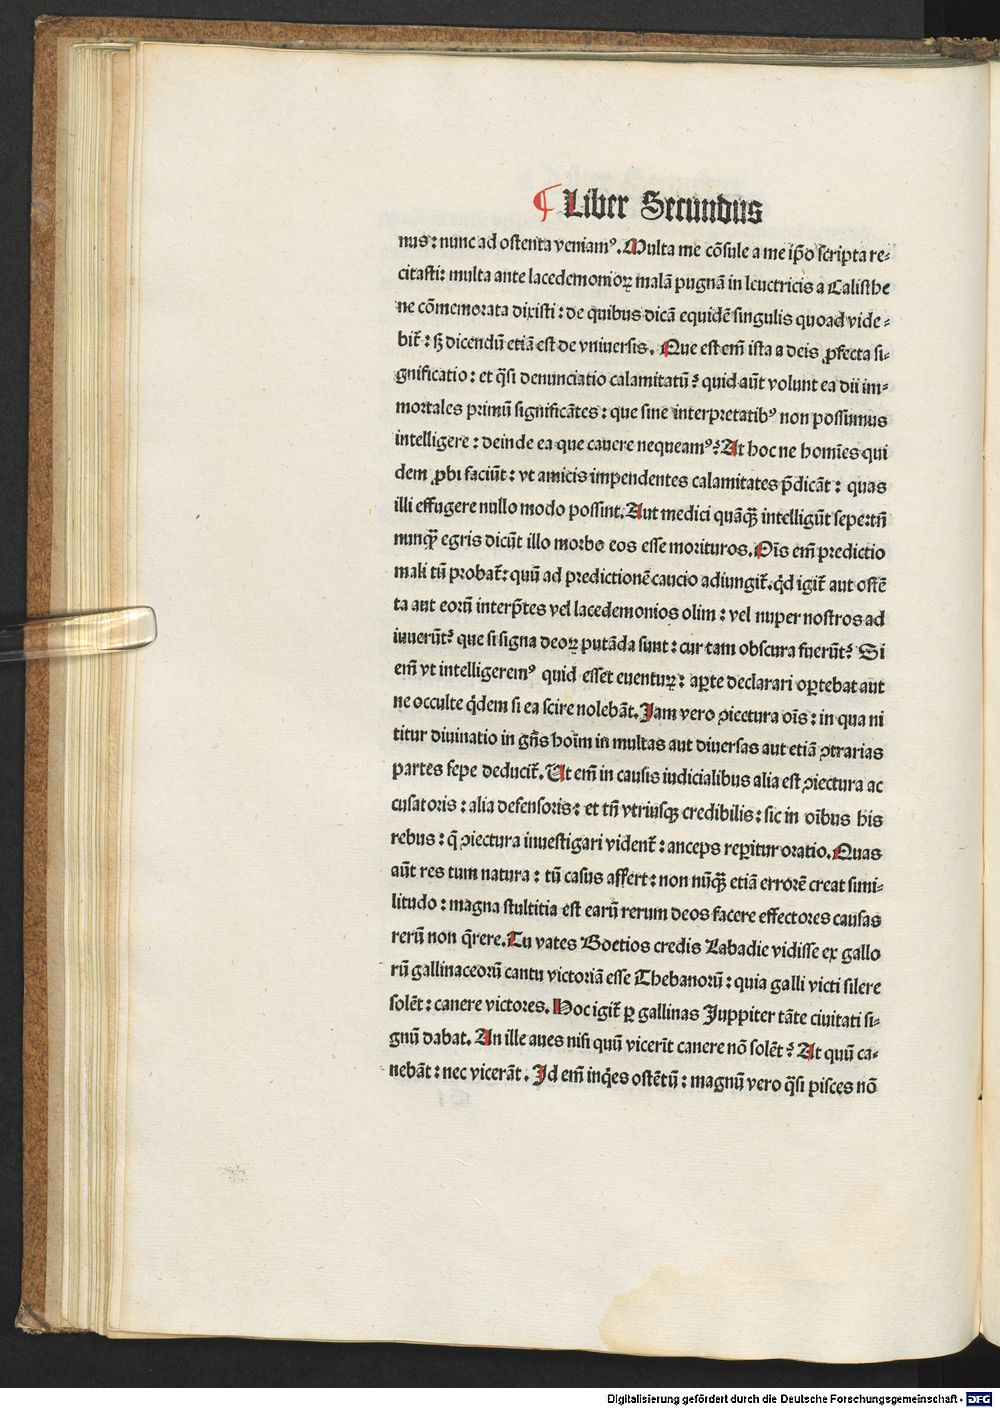 ¶ Liber Secundus
nus: nunc ad ostenta veniamꝰ. Multa me cōsule a me ip̄o scripta re⸗
citasti: multa ante lacedemonioꝝ malā pugnā in leuctricis a Calisthe
ne cōmemorata dixisti: de quibus dicā equidē singulis quoad vide⸗
bit̄: sꝫ dicendū etiā est de vniuersis. Que est em̄ ista a deis ꝓfecta si⸗
gnificatio: et q̄si denunciatio calamitatū? quid aūt volunt ea dii im⸗
mortales primū significātes: que sine interpretatibꝰ non possumus
intelligere: deinde ea que cauere nequeamꝰ? At hoc ne homīes qui
dem ꝓbi faciūt: vt amicis impendentes calamitates p̄dicāt: quas
illi effugere nullo modo possint. Aut medici quāqꝫ intelligūt sepe: tn̄
nunqꝫ egris dicūt illo morbo eos esse morituros. Oīs em̄ predictio
mali tū probat̄: quū ad predictionē caucio adiungit̄. qd̓ igit̄ aut ostē
ta aut eorū interp̄tes vel lacedemonios olim: vel nuper nostros ad
iuuerūt? que si signa deoꝝ putāda sunt: cur tam obscura fuerūt? Si
em̄ vt intelligeremꝰ quid esset euentuꝝ: aꝑte declarari oꝑtebat aut
ne occulte q̓dem si ea scire nolebāt. Jam vero ꝯiectura oīs: in qua ni
titur diuinatio in gn̄s hoīm in multas aut diuersas aut etiā ꝯtrarias
partes sepe deducit̄. Ut em̄ in causis iudicialibus alia est ꝯiectura ac
cusatoris: alia defensoris: et tn̄ vtriusqꝫ credibilis: sic in oībus his
rebus: q̄ ꝯiectura inuestigari vident̄: anceps reꝑitur oratio. Quas
aūt res tum natura: tū casus affert: non nūqꝫ etiā errorē creat simi⸗
litudo: magna stultitia est earū rerum deos facere effectores causas
rerū non q̄rere. Tu vates Boetios credis Labadie vidisse ex gallo
rū gallinaceorū cantu victoriā esse Thebanorū: quia galli victi silere
solēt: canere victores. Hoc igit̄ ꝑ gallinas Juppiter tāte ciuitati si⸗
gnū dabat. An ille aues nisi quū vicerīt canere nō solēt? At quū ca⸗
nebāt: nec vicerāt. Id em̄ inq̓es ostētū: magnū vero q̄si pisces nō
Digitalisierung gefördert durch die Deutsche Forschungsgemeinschaft - DFG